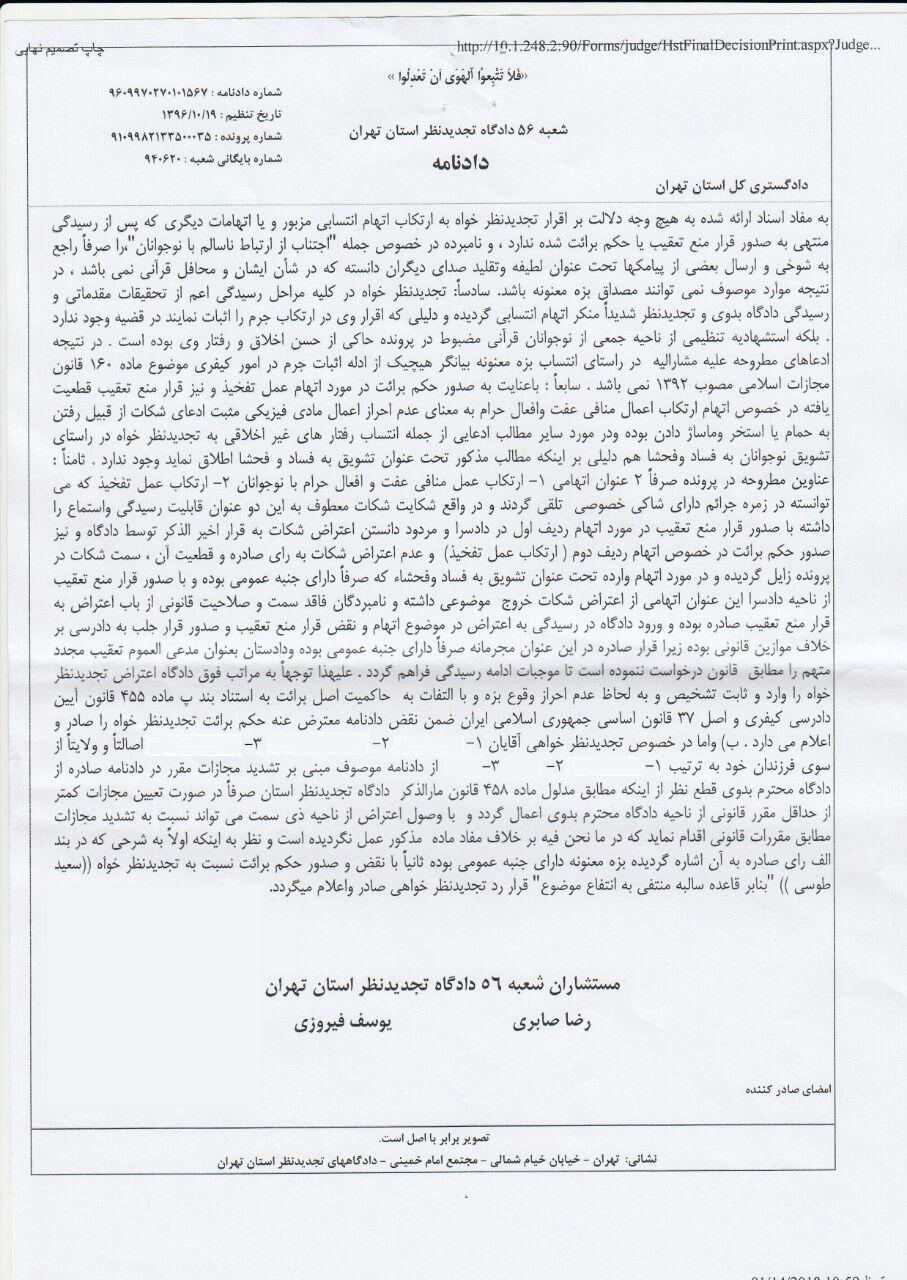 چاپ تصمیم نهایی
http://10.1.248.2:90/Forms/judge/HstFinalDecisionPrint.aspx?Judge...
«فَلاَ تَتَّبِعوُا اَلهَوَی اَنْ تَعْدِلُوا »
شماره دادنامه : ۹۶۰۹۹۷۰۲۷۰۱۰۱۵۶۷
تاریخ تنظیم : ۱۳۹۶/۱۰/۱۹
شماره پرونده : ۹۱۰۹۹۸۲۱۳۳۵۰۰۰۳۵
شماره بایگانی شعبه : ۹۴۰۶۲۰
شعبه ۵۶ دادگاه تجدیدنظر استان تهران
دادنامه
دادگستری کل استان تهران
به مفاد اسناد ارائه شده به هیچ وجه دلالت بر اقرار تجدیدنظر خواه به ارتکاب اتهام انتسابی مزبور و یا اتهامات دیگری که پس از رسیدگی
منتهی به صدور قرار منع تعقیب یا حکم برائت شده ندارد ، و نامبرده در خصوص جمله "اجتناب از ارتباط ناسالم با نوجوانان"،را صرفاً راجع
به شوخی و ارسال بعضی از پیامکها تحت عنوان لطیفه وتقلید صدای دیگران دانسته که در شأن ایشان و محافل قرآنی نمی باشد ، در
نتیجه موارد موصوف نمی توانند مصداق بزه معنونه باشد. سادساً: تجدیدنظر خواه در کلیه مراحل رسیدگی اعم از تحقیقات مقدماتی و
رسیدگی دادگاه بدوی و تجدیدنظر شدیداً منکر اتهام انتسابی گردیده و دلیلی که اقرار وی در ارتکاب جرم را اثبات نمایند در قضیه وجود ندارد
. بلکه استشهادیه تنظیمی از ناحیه جمعی از نوجوانان قرآنی مضبوط در پرونده حاکی از حسن اخلاق و رفتار وی بوده است . در نتیجه
ادعاهای مطروحه علیه مشارالیه در راستای انتساب بزه معنونه بیانگر هیچیک از ادله اثبات جرم در امور کیفری موضوع ماده ۱۶۰ قانون
مجازات اسلامی مصوب ۱۳۹۲ نمی باشد . سابعاً : باعنایت به صدور حکم برائت در مورد اتهام عمل تفخیذ و نیز قرار منع تعقیب قطعیت
یافته در خصوص اتهام ارتکاب اعمال منافی عفت وافعال حرام به معنای عدم احراز اعمال مادی فیزیکی مثبت ادعای شکات از قبیل رفتن
به حمام یا استخر وماساژ دادن بوده ودر مورد سایر مطالب ادعایی از جمله انتساب رفتار های غیر اخلاقی به تجدیدنظر خواه در راستای
تشویق نوجوانان به فساد وفحشا هم دلیلی بر اینکه مطالب مذکور تحت عنوان تشویق به فساد و فحشا اطلاق نماید وجود ندارد . ثامناً :
عناوین مطروحه در پرونده صرفاً ۲ عنوان اتهامی ۱- ارتکاب عمل منافی عفت و افعال حرام با نوجوانان ۲- ارتکاب عمل تفخیذ که می
توانسته در زمره جرائم دارای شاکی خصوصی تلقی گردند و در واقع شکایت شکات معطوف به این دو عنوان قابلیت رسیدگی واستماع را
داشته با صدور قرار منع تعقیب در مورد اتهام ردیف اول در دادسرا و مردود دانستن اعتراض شکات به قرار اخیر الذکر توسط دادگاه و نیز
صدور حکم برائت در خصوص اتهام ردیف دوم ( ارتکاب عمل تفخیذ) و عدم اعتراض شکات به رای صادره و قطعیت آن ، سمت شکات در
پرونده زایل گردیده و در مورد اتهام وارده تحت عنوان تشویق به فساد وفحشاء که صرفاً دارای جنبه عمومی بوده و با صدور قرار منع تعقیب
از ناحیه دادسرا این عنوان اتهامی از اعتراض شکات خروج موضوعی داشته و نامبردگان فاقد سمت و صلاحیت قانونی از باب اعتراض به
قرار منع تعقیب صادره بوده و ورود دادگاه در رسیدگی به اعتراض در موضوع اتهام و نقض قرار منع تعقیب و صدور قرار جلب به دادرسی بر
خلاف موازین قانونی بوده زیرا قرار صادره در این عنوان مجرمانه صرفاً دارای جنبه عمومی بوده ودادستان بعنوان مدعی العموم تعقیب مجدد
متهم را مطابق قانون درخواست ننموده است تا موجبات ادامه رسیدگی فراهم گردد . علیهذا توجهاً به مراتب فوق دادگاه اعتراض تجدیدنظر
خواه را وارد و ثابت تشخیص و به لحاظ عدم احراز وقوع بزه و با التفات به حاکمیت اصل برائت به استناد بند پ ماده ۴۵۵ قانون آیین
دادرسی کیفری و اصل ۳۷ قانون اساسی جمهوری اسلامی ایران ضمن نقض دادنامه معترض عنه حکم برائت تجدیدنظر خواه را صادر و
اعلام می دارد . ب) واما در خصوص تجدیدنظر خواهی آقایان ۱- ۲- ۳- اصالتاً و ولایتاً از
سوی فرزندان خود به ترتیب ۱- ۲- ۳- از دادنامه موصوف مبنی بر تشدید مجازات مقرر در دادنامه صادره از
دادگاه محترم بدوی قطع نظر از اینکه مطابق مدلول ماده ۴۵۸ قانون مارالذکر دادگاه تجدیدنظر استان صرفاً در صورت تعیین مجازات کمتر
از حداقل مقرر قانونی از ناحیه دادگاه محترم بدوی اعمال گردد و با وصول اعتراض از ناحیه ذی سمت می تواند نسبت به تشدید مجازات
مطابق مقررات قانونی اقدام نماید که در ما نحن فیه بر خلاف مفاد ماده مذکور عمل نگردیده است و نظر به اینکه اولاً به شرحی که در بند
الف رای صادره به آن اشاره گردیده بزه معنونه دارای جنبه عمومی بوده ثانیاً با نقض و صدور حکم برائت نسبت به تجدیدنظر خواه ((سعید
طوسی )) "بنابر قاعده سالبه منتفی به انتفاع موضوع" قرار رد تجدیدنظر خواهی صادر واعلام میگردد.
مستشاران شعبه ۵۶ دادگاه تجدیدنظر استان تهران
رضا صابری یوسف فیروزی
امضای صادر کننده
تصویر برابر با اصل است.
نشانی: تهران - خیابان خیام شمالی - مجتمع امام خمینی - دادگاههای تجدیدنظر استان تهران